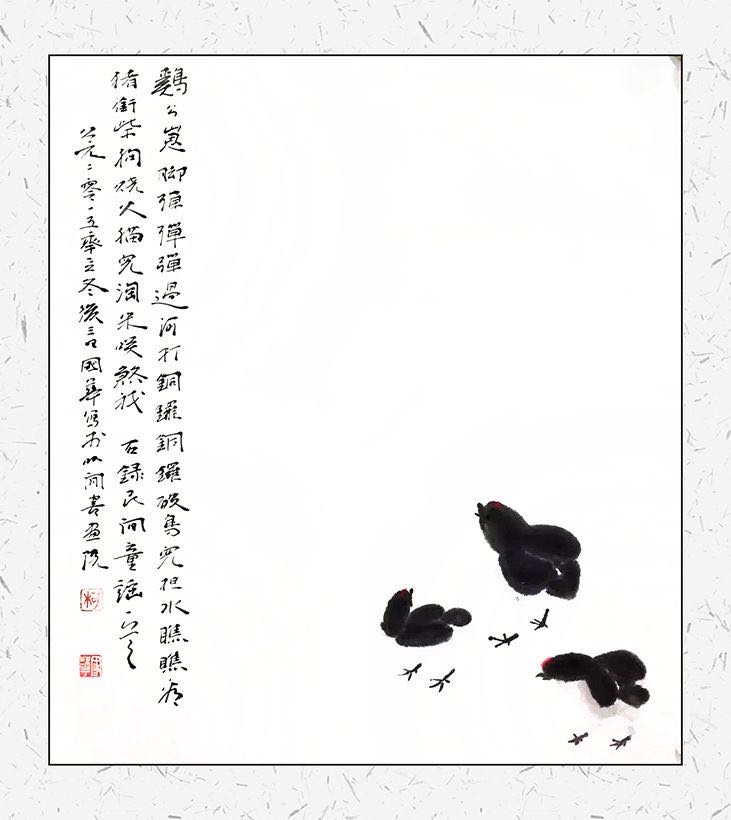 鷄公崽脚彈彈彈過河打銅鑼銅鑼破鳥兒担水瞧瞧看
猪銜柴狗燒火猫兒淘米咲煞我 右録民間童謡一首
公元二零一五秊立冬後三日國華寫於間書画院